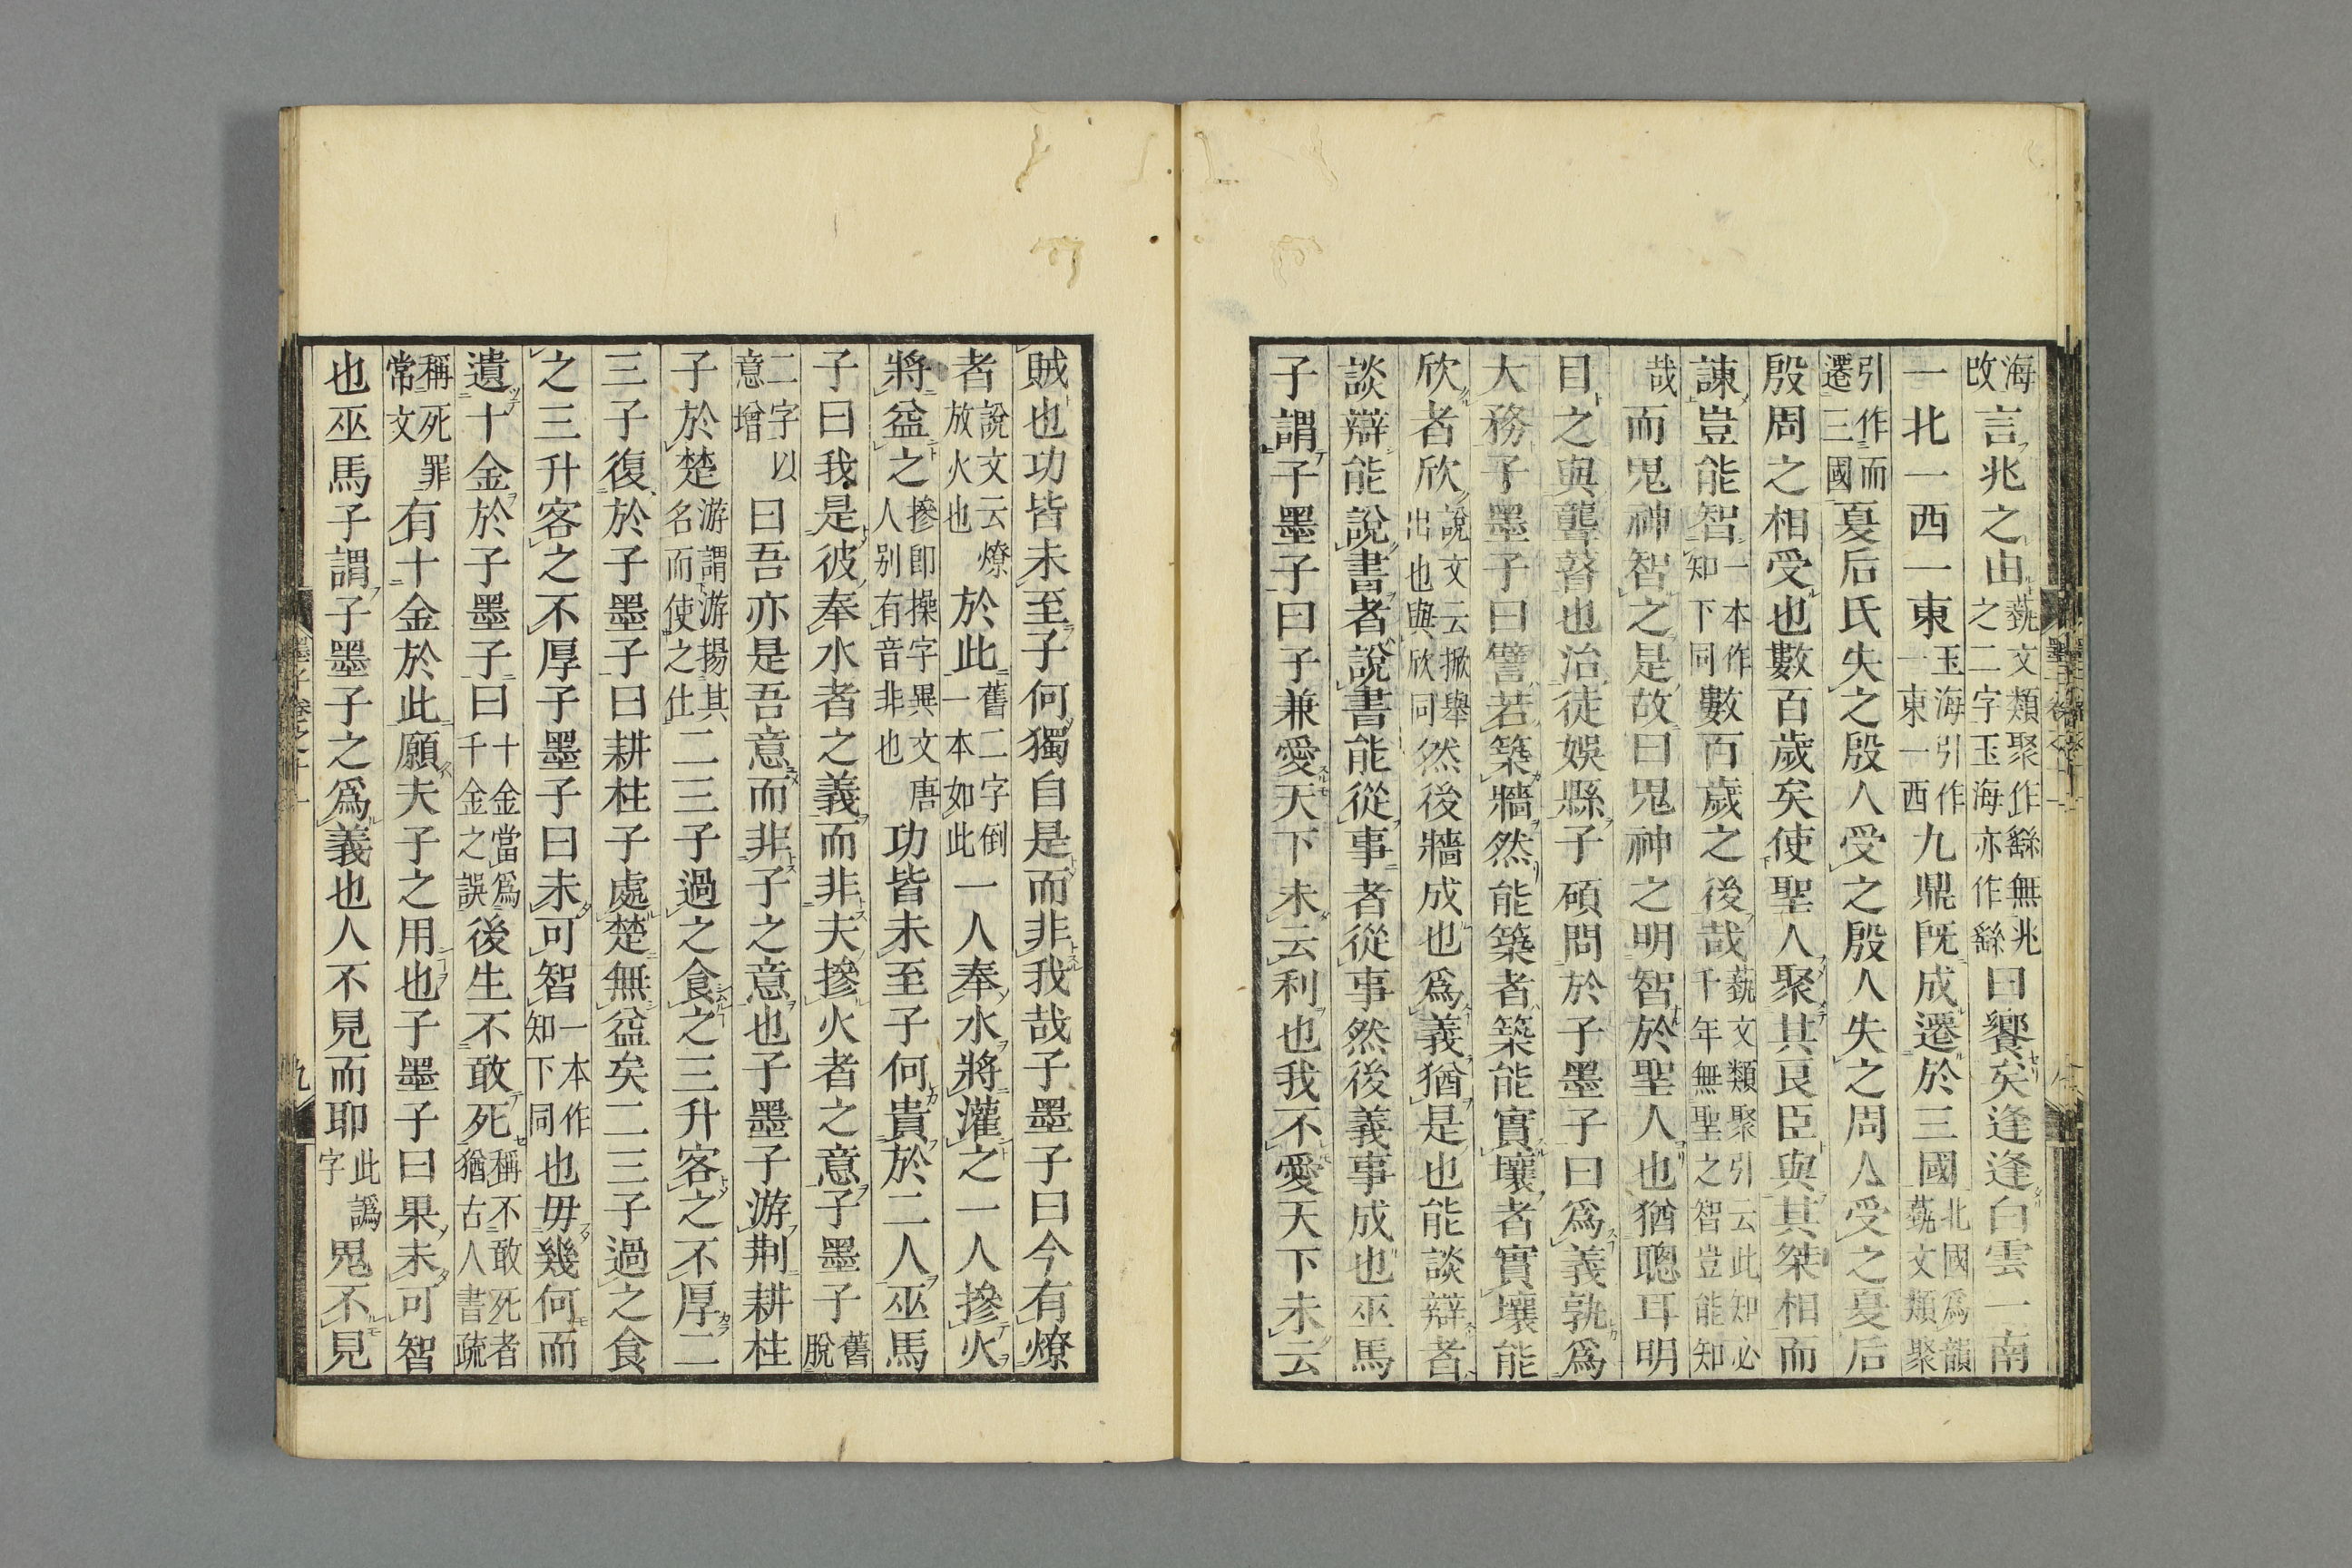 海改言兆之由藝文類聚作繇無兆之二字玉海亦作繇曰饗矣逢逢白雲一南
一北一西一東玉海引作一東一西九鼎既成遷於三國北國爲韻藝文類聚
引作而遷三國夏后氏失之殷人受之殷人失之周人受之夏后
殷周之相受也數百歲矣使聖人聚其良臣與其桀相而
諫豈能智一本作知下同數百歲之後哉藝文類聚引云此知必千年無聖之智豈能知
哉而鬼神智之是故曰鬼神之明智於聖人也猶聰耳明
目之與聾瞽也治徒娛縣子碩問於子墨子曰爲義孰爲
大務子墨子曰譬若築牆然能築者築能實壤者實壤能
欣者欣說文云掀舉出也與欣同然後牆成也爲義猶是也能談辯者
談辯能說書者說書能從事者從事然後義事成也巫馬
子謂子墨子曰子兼愛天下未云利也我不愛天下未云
賊也功皆未至子何獨自是而非我哉子墨子曰今有燎
者說文云燎放火也於此舊二字倒一本如此一人奉水將灌之一人摻火
將益之摻即操字異文唐人別有音非也功皆未至子何貴於二人巫馬
子曰我是彼奉水者之義而非夫摻火者之意子墨子舊脫
二字以意增曰吾亦是吾意而非子之意也子墨子游荆耕柱
子於楚游謂游揚其名而使之仕二三子過之食之三升客之不厚二
三子復於子墨子曰耕柱子處楚無益矣二三子過之食
之三升客之不厚子墨子曰未可智一本作知下同也毋幾何而
遺十金於子墨子曰十金當爲千金之誤後生不敢死稱不敢死者猶古人書疏
稱死罪常文有十金於此願夫子之用也子墨子曰果未可智
也巫馬子謂子墨子之爲義也人不見而耶此譌字鬼不見
墨子卷之十一
九